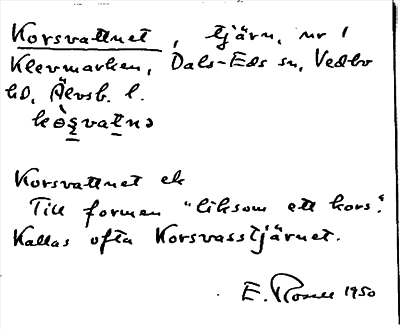 Korsvattnet, tjärn, nr 1
Klevmarken, Dals-Eds sn, Vedbo
hd, Älvsb. l.
kɵ̀s̠vat̠nə
Korsvattnet ek
Till formen "liksom ett kors".
Kallas ofta Korsvasstjärnet.
E. 1950